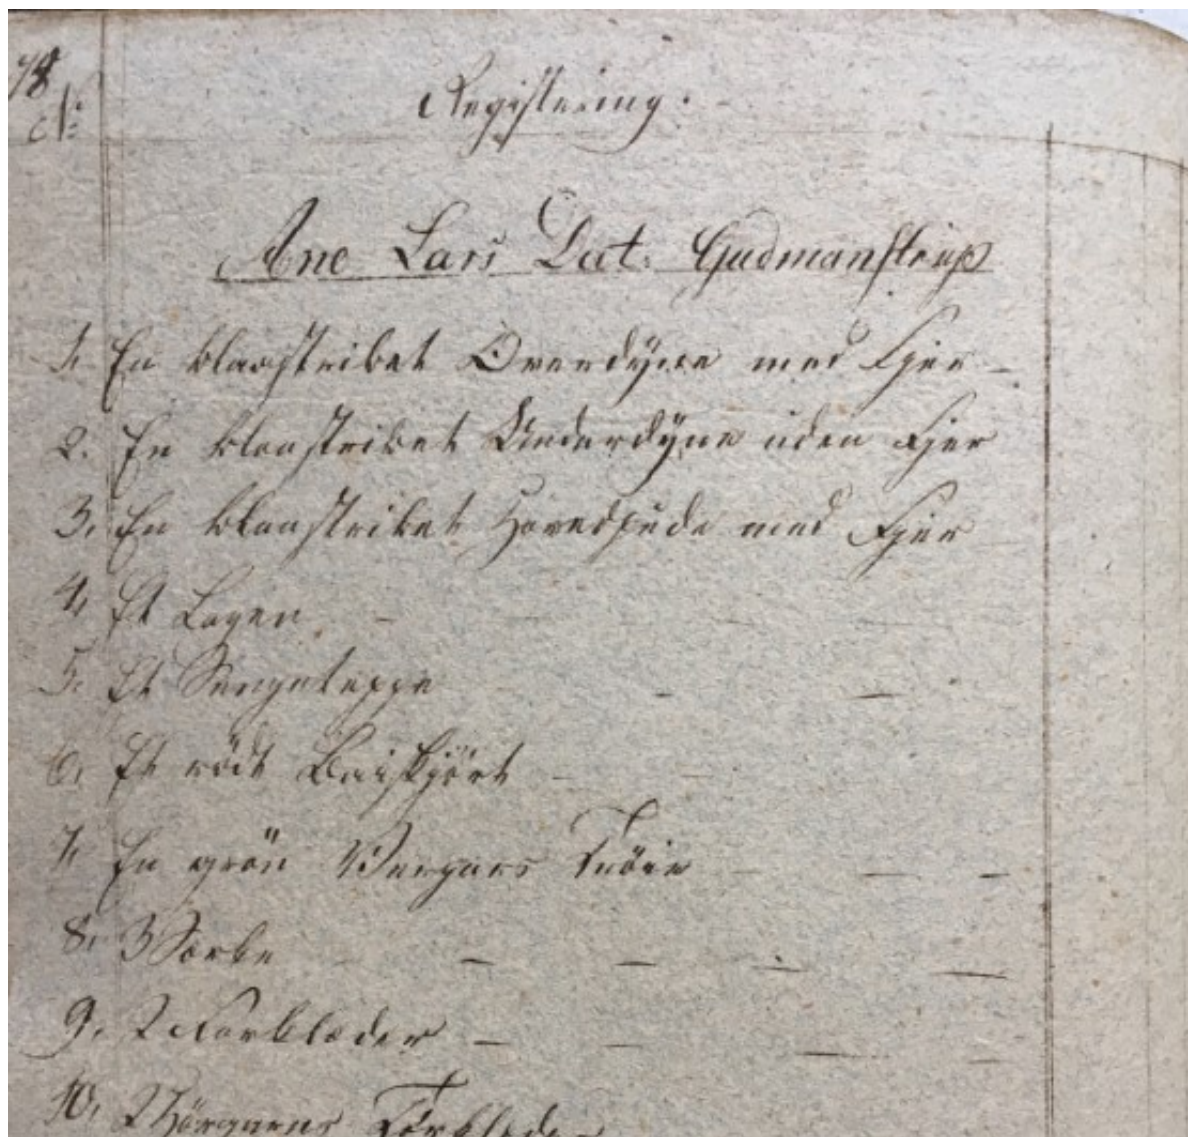 78
No
Registering.
Ane Lars Dat. Gudmanstrup
1. En blaastribet Overdÿne med Fjer
2. En blaastribet Underdÿne uden Fjer
3. En blaastribet Hovedpude med Fjer
4. Et Lagen
5. Et Sengeteppe
6. Et rödt Baiskjört
7. En grön Vergars Tröie
8. 3 Særke
9. 2 Forklæder
10. 2 Hörgarns Forklæder